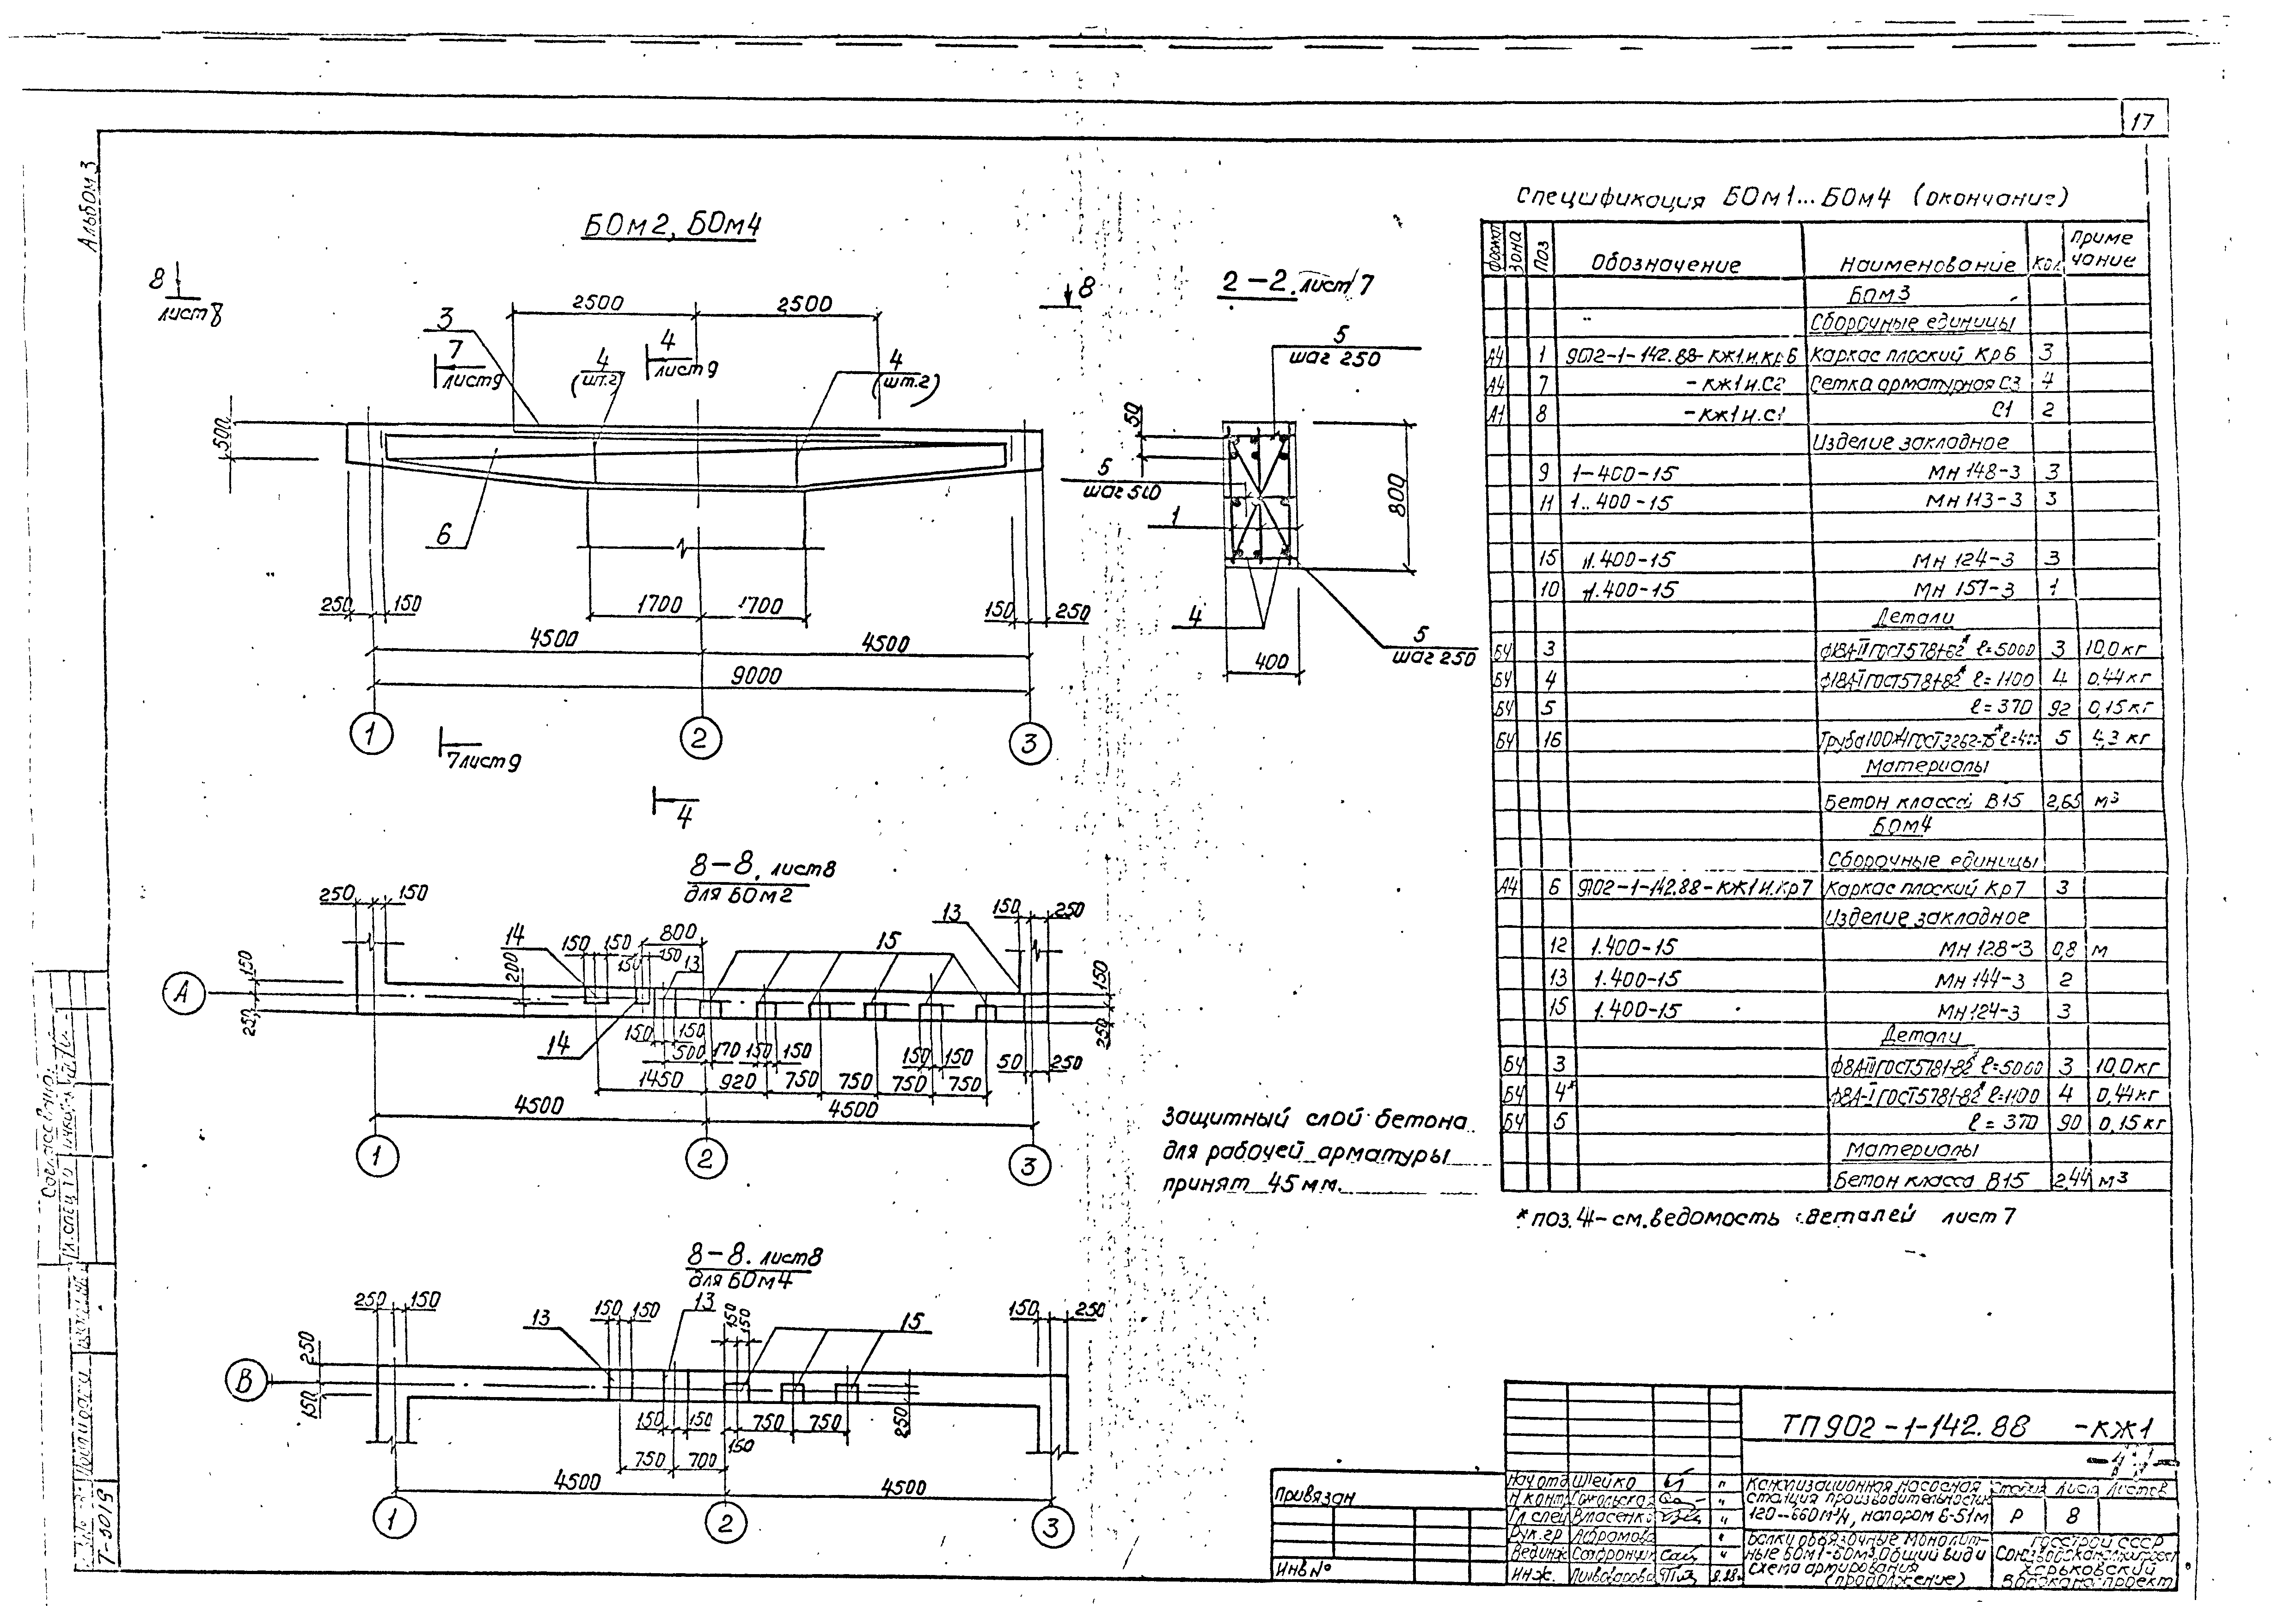 17
Альбом 3
БОм2, БОм4
8
лист 8
8
2500
2500
3
7
лист 9
4
лист 9
4
(шт.2)
4
(шт.2)
500
6
250
150
1700
1700
150
250
4500
4500
9000
1
2
3
7 лист 9
4
2-2. лист 7
5
шаг 250
50
5
шаг 500
1
800
4
5
шаг 250
400
8-8. лист 8
для БОм2
250
150
14
150
150
800
150
150
13
15
13
150
250
200
А
150
250
150
250
14
150
150
500
170
150
150
150
150
50
250
1450
920
750
750
750
750
4500
4500
1
2
3
Защитный слой бетона
для рабочей арматуры
принят 45 мм.
8-8. лист 8
для БОм4
250
150
13
150
150
13
150
150
15
150
250
В
250
150
150
150
750
750
250
150
750
700
4500
4500
1
2
3
Спецификация БОм1...БОм4 (окончание)
Формат Зона Поз Обозначение Наименование Кол. Приме
чание
БОм3
Сборочные единицы
А4 1 902-1-142.88-КЖ1.и.Кр6 Каркас плоский Кр6 3
А4 7 -КЖ1и.С2 Сетка арматурная С3 4
А1 8 -КЖ1и.С1 С1 2
Изделие закладное
9 1-400-15 Мн 148-3 3
11 1..400-15 Мн 113-3 3
15 1.400-15 Мн 124-3 3
10 1.400-15 Мн 157-3 1
Детали
БЧ 3 ℓ=5000 3 10,0 кг
БЧ 4 ℓ=1100 4 0,44 кг
БЧ 5 ℓ=370 92 0,15 кг
БЧ 16 Труба 100х4 ГОСТ 3262-75* 5 4,3 кг
Материалы
Бетон класса В15 2,65 м3
БОм4
Сборочные единицы
А4 6 902-1-142.88-КЖ1и.Кр7 Каркас плоский Кр7 3
Изделие закладное
12 1.400-15 Мн 128-3 0,8 м
13 1.400-15 Мн 144-3 2
15 1.400-15 Мн 124-3 3
Детали
БЧ 3 ГОСТ 5781-82* ℓ=5000 3 10,0 кг
БЧ 4* ф8А-I ГОСТ 5781-82* ℓ=1100 4 0,44 кг
БЧ 5 ℓ=370 90 0,15 кг
Материалы
Бетон класса В15 2,44 м3
* поз. 4 - см. ведомость деталей лист 7
ТП 902-1-142.88 -КЖ1
Привязан
Инв №
Нач отд Шейко
Н контр
Гл спец Власенко
Рук.гр
Вед инж
Инж.
Канализационная насосная
станция производительностью
напором 6-51м
Стадия Лист Листов
Р 8
Балки обвязочные монолит-
ные БОм1-БОм3. Общий вид и
схема армирования
(продолжение)
Госстрой СССР
Харьковский
Водоканалпроект
Согласовано:
Гл.спец
Т-3019